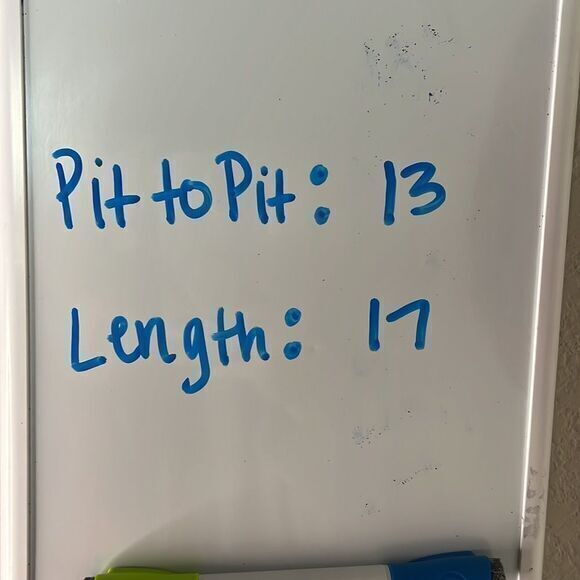 Pit to Pit: 13
Length: 17